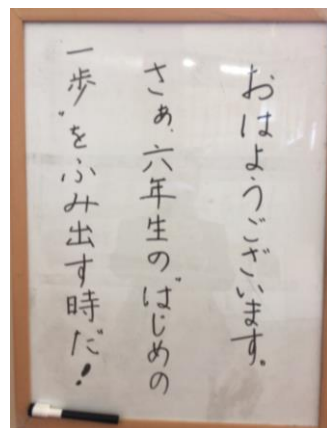 おはようございます。
さぁ、六年生の“はじめの
一歩”をふみ出す時だ！